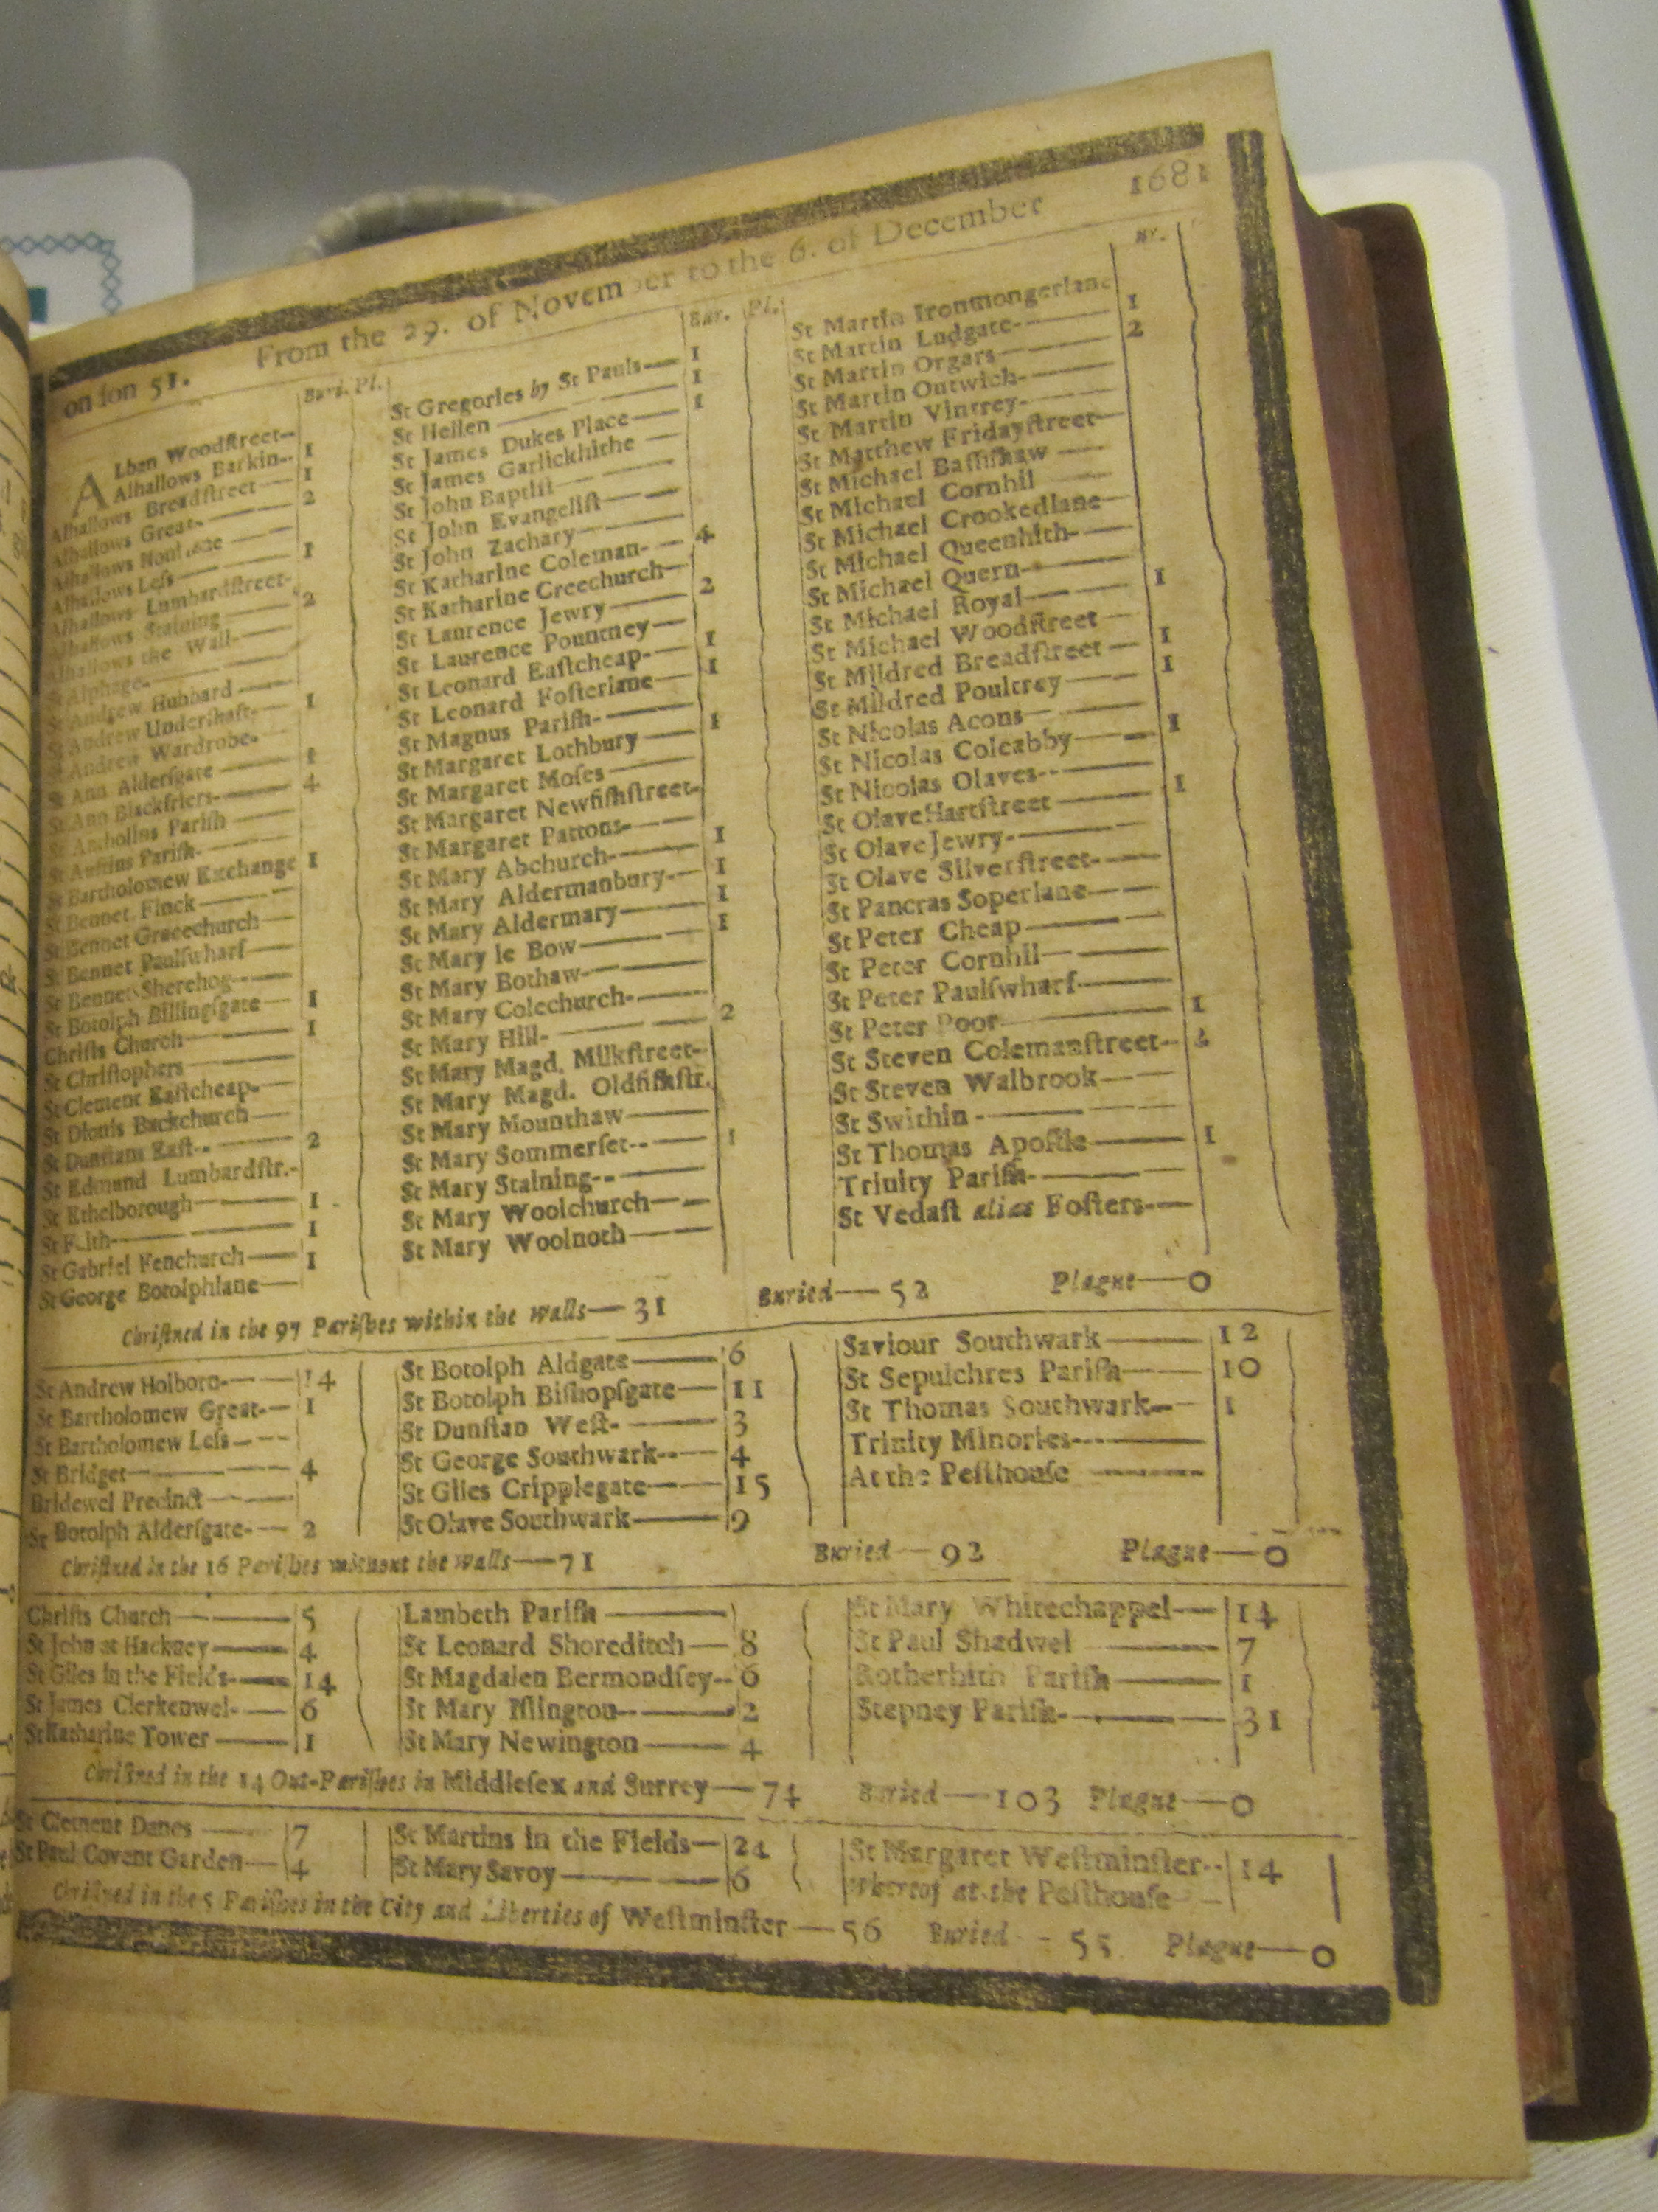 on ion 51. From the 29. of November to the 6. of December 1681
Buri. Pl.
ALban Woodſtreet
Alhallows Barkin 1
Alhallows Breadſtreet 1
Alhallows Great 2
Alhallows
Alhallows Leſs 1
Alhallows Lumbardſtreet
Alhallows Staining 2
Alhallows the Wall
St Alphage
St Andrew Hubbard
St Andrew Underſhaft 1
St Andrew Wardrobe
St Ann Alderſgate
St Ann Blackfriers 4
St Antholins Pariſh
St Auſtins Pariſh
St Bartholomew Exchange 1
St Bennet Finck
St Bennet Gracechurch
St Bennet Paulſwharf
St Bennet Sherehog
St Botolph Billingſgate 1
Chriſts Church 1
St Chriſtophers
St Clement Eaſtcheap
St Dionis Backchurch
St Dunſtans Eaſt 2
St Edmund Lumbardſtr.
St Ethelborough 1
St F ith 1
St Gabriel Fenchurch 1
St George Botolphlane
Bur. Pl.
St Gregories by St Pauls 1
St Hellen 1
St James Dukes Place 1
St James Garlickhithe
St John Baptiſt
St John Evangeliſt
St John Zachary
St Katharine Coleman 4
St Katharine Creechurch
St Laurence Jewry 2
St Laurence Pountney
St Leonard Eaſtcheap 1
St Leonard Foſterlane 1
St Magnus Pariſh
St Margaret Lothbury 1
St Margaret Moſes
St Margaret Newfiſhſtreet
St Margaret Pattons
St Mary Abchurch 1
St Mary Aldermanbury 1
St Mary Aldermary 1
St Mary le Bow 1
St Mary Bothaw
St Mary Colechurch
St Mary Hill 2
St Mary Magd. Milkſtreet
St Mary Magd. Oldfiſhſtr.
St Mary Mounthaw
St Mary Sommerſet 1
St Mary Staining
St Mary Woolchurch
St Mary Woolnoth
St Martin Ironmongerlane
St Martin Ludgate 1
St Martin Orgars 2
St Martin Outwich
St Martin Vintrey
St Matthew Fridayſtreet
St Michael Baſſiſhaw
St Michael Cornhil
St Michael Crookedlane
St Michael Queenhith
St Michael Quern
St Michael Royal 1
St Michael Woodſtreet
St Mildred Breadſtreet 1
St Mildred Poultrey 1
St Nicolas Acons
St Nicolas Coleabby 1
St Nicolas Olaves
St Olave Hartſtreet 1
St Olave Jewry
St Olave Silverſtreet
St Pancras Soperlane
St Peter Cheap
St Peter Cornhil
St Peter Paulſwharf
St Peter Poor 1
St Steven Colemanſtreet 2
St Steven Walbrook
St Swithin
St Thomas Apoſtle 1
Trinity Pariſh
St Vedaſt alias Foſters
Chriſtned in the 97 Pariſhes within the Walls—31 Buried—52 Plague—0
St Andrew Holborn 14
St Bartholomew Great 1
St Bartholomew Leſs
St Bridget 4
Bridewel Precinct
St Botolph Alderſgate 2
St Botolph Aldgate 6
St Botolph Biſhopſgate 11
St Dunſtan Weſt 3
St George Southwark 4
St Giles Cripplegate 15
St Olave Southwark 9
Saviour Southwark 12
St Sepulchres Pariſh 10
St Thomas Southwark 1
Trinity Minories
At the Peſthouſe
Chriſtned in the 16 Pariſhes without the Walls—71 Buried—92 Plague—0
Chriſts Church 5
St John at Hackney 4
St Giles in the Fields 14
St James Clerkenwel 6
St Katharine Tower 1
Lambeth Pariſh
St Leonard Shoreditch 8
St Magdalen Bermondſey 6
St Mary Iſlington 2
St Mary Newington 4
St Mary Whitechappel 14
St Paul Shadwel 7
Rotherhith Pariſh 1
Stepney Pariſh 31
Chriſtned in the 14 Out-Pariſhes in Middleſex and Surrey—74 Buried—103 Plague—0
St Clement Danes 7
St Paul Covent Garden 4
St Martins in the Fields 24
St Mary Savoy 6
St Margaret Weſtminſter 14
Whereof at the Peſthouſe
Chriſtned in the 5 Pariſhes in the City and Liberties of Weſtminſter—56 Buried—55 Plague—0